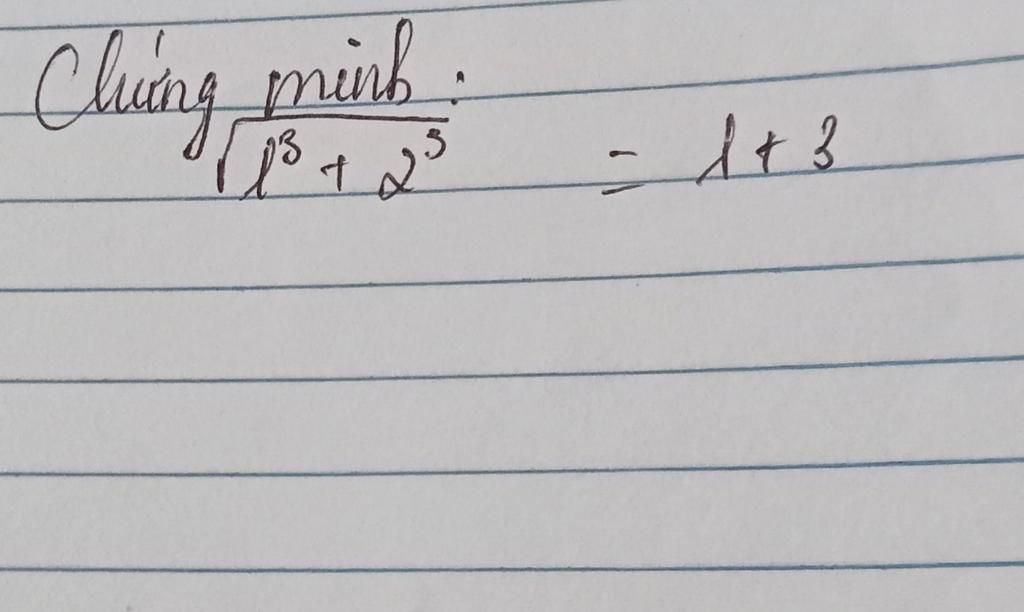 Chứng minh:
√(1³ + 2³) = 1 + 3